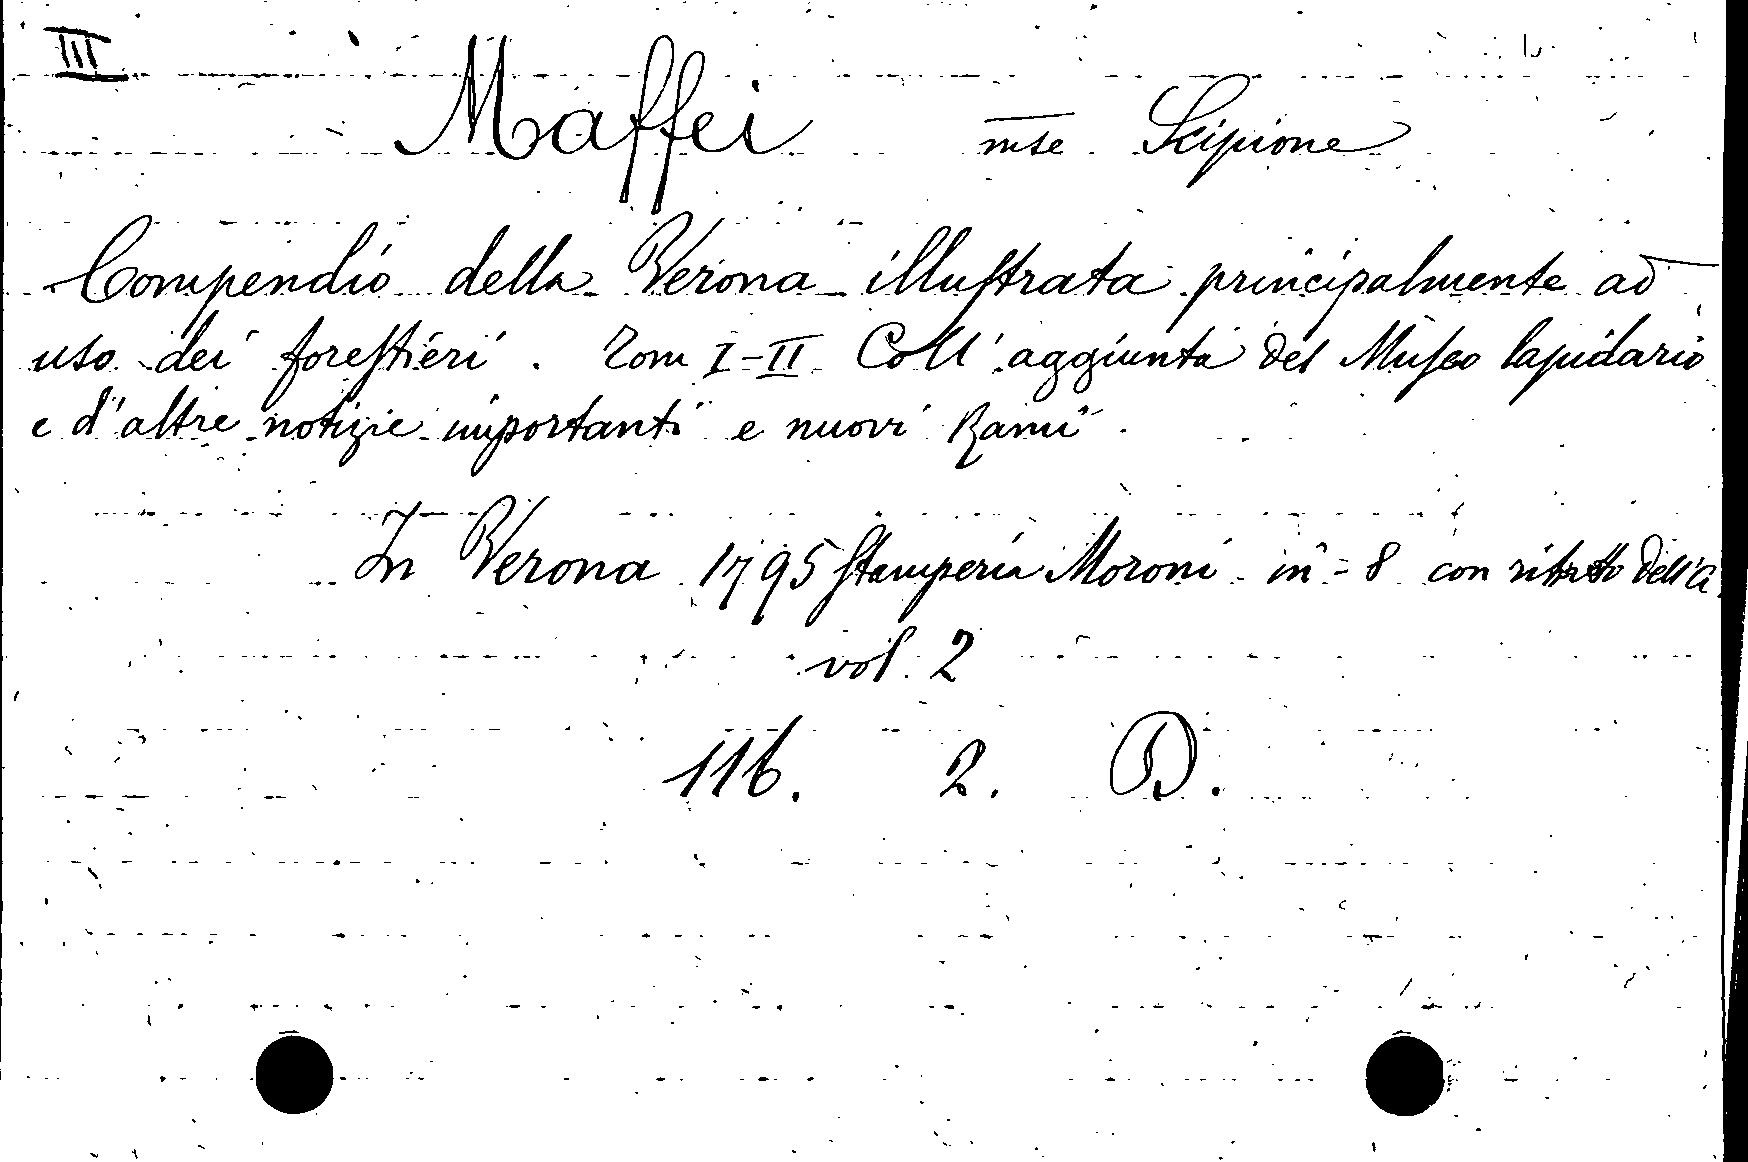 III
Maffei mse Scipione
Compendio della Verona illustrata principalmente ad
uso dei forestieri. Tom I-II Coll' aggiunta del Museo lapidario
e d'altre notizie importanti e nuovi Rami.
In Verona 1795 Stamperia Moroni in-8 con ritratto dell'a.
vol. 2
116. 2. D.